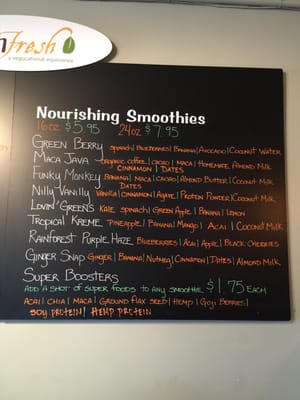 fresh
a vegucational experience
Nourishing Smoothies
16oz $5.95 24oz $7.95
Green Berry Spinach | Blueberries | Banana | Avocado | Coconut Water
Maca Java Organic Coffee | Cacao | Maca | Homemade Almond Milk
Cinnamon | Dates
Funky Monkey Banana | Maca | Cacao | Almond Butter | Coconut Milk
Dates
Nilly Vanilly Vanilla | Cinnamon | Agave | Protein Powder | Coconut Milk
Lovin' Greens Kale Spinach | Green Apple | Banana | Lemon
Tropical Kreme Pineapple | Banana | Mango | Acai | Coconut Milk
Rainforest Purple Haze Blueberries | Acai | Apple | Black Cherries
Ginger Snap Ginger | Banana | Nutmeg | Cinnamon | Dates | Almond Milk
Super Boosters
Add a shot of super foods to any smoothie $1.75 Each
Acai | Chia | Maca | Ground Flax Seed | Hemp | Goji Berries |
Soy Protein | Hemp Protein